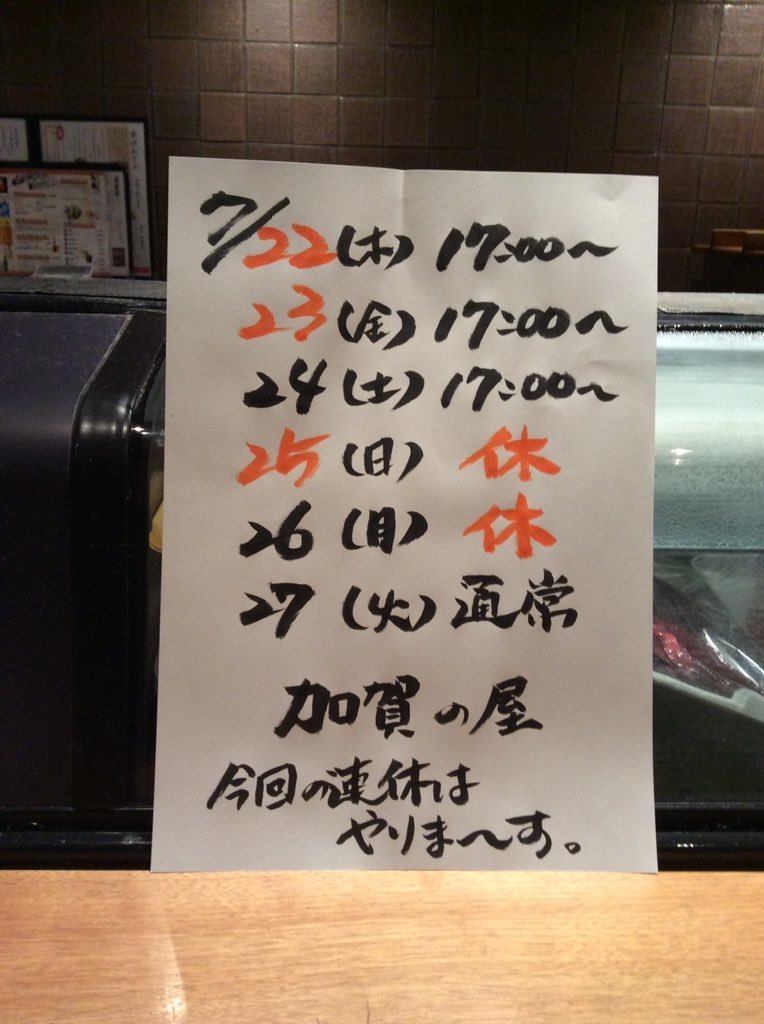 7/22(木) 17:00〜
23(金) 17:00〜
24(土) 17:00〜
25(日) 休
26(月) 休
27(火) 通常
加賀の屋
今回の連休は
やりま〜す。